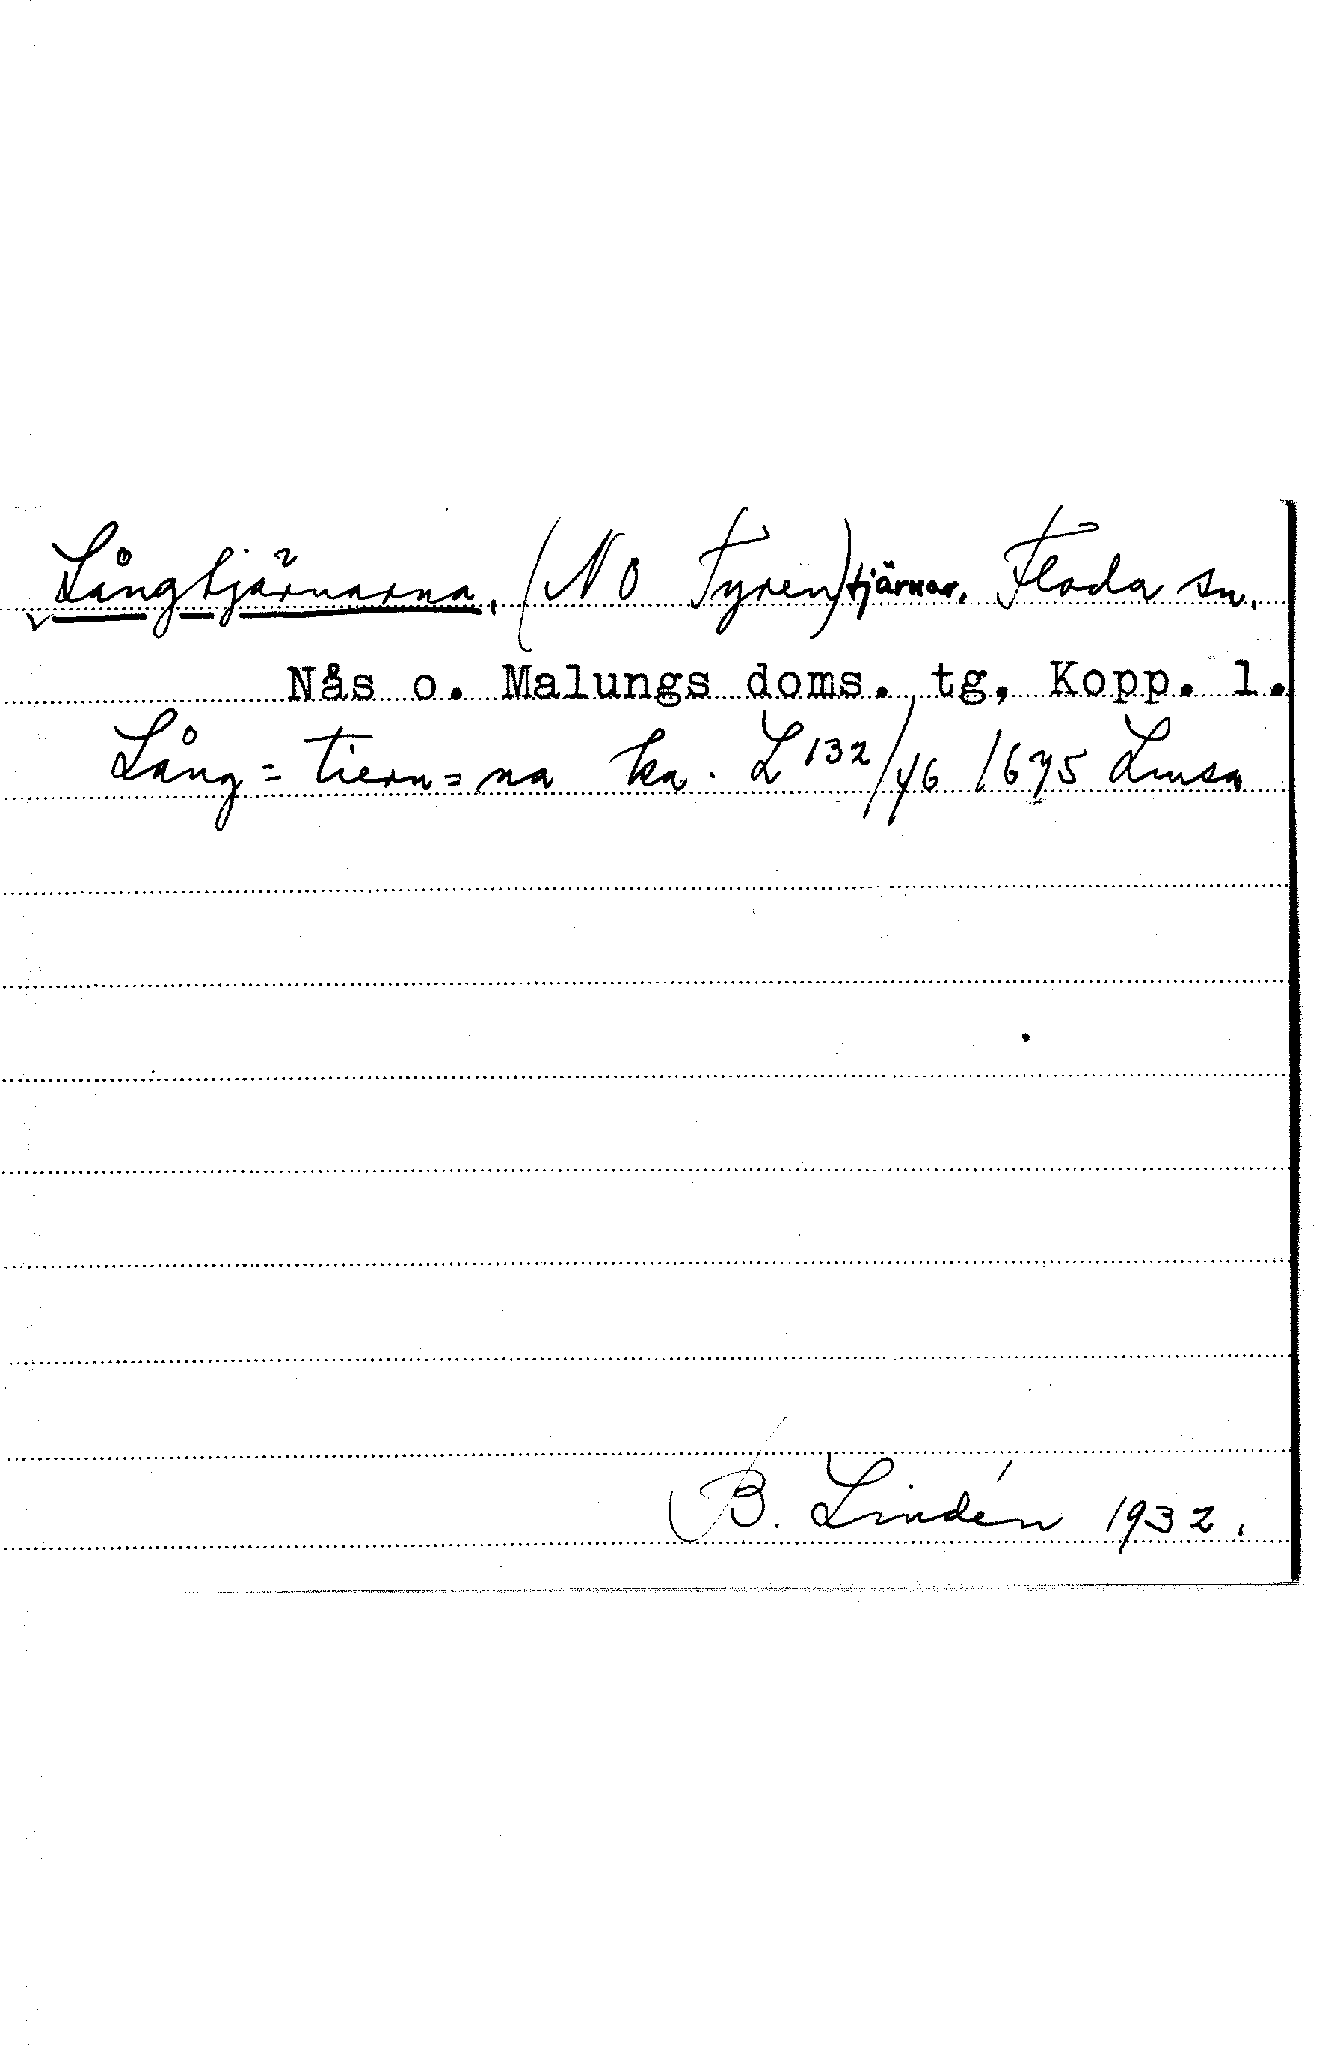 Långtjärnarna, (NO Tyren) tjärnar. Floda sn.
Nås o. Malungs doms. tg, Kopp. l.
Lång=tiern=na ka. L 132/46 1675 Lmsa
B. Lindén 1932.